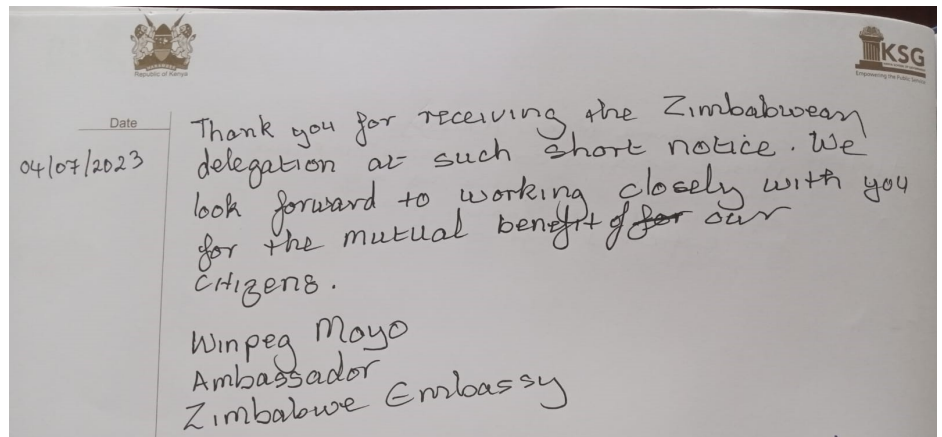 Republic of Kenya
KSG
Empowering the Public Service
Date
04/07/2023
Thank you for receiving the Zimbabwean
delegation at such short notice. We
look forward to working closely with you
for the mutual benefit of for our
citizens.
Winpeg Moyo
Ambassador
Zimbabwe Embassy